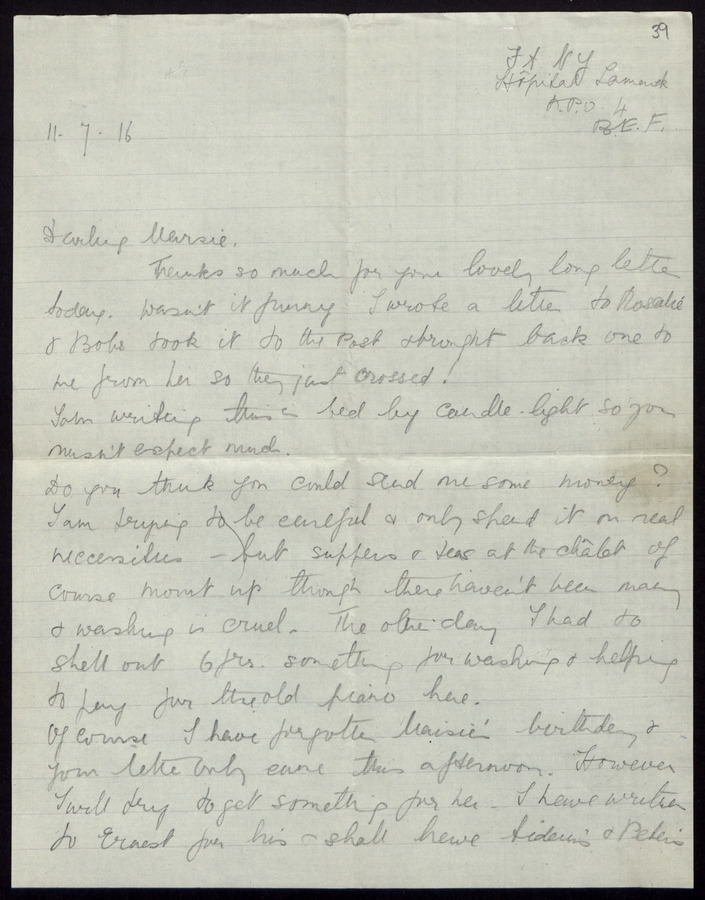 39
F A N Y
Hôpital Lamarck
A.P.O 4
B.E.F.
11. 7. 16
Darling Mersie,
Thanks so much for your lovely long letter
today. Wasn't it funny I wrote a letter to Rosalie
& Bobs took it to the Post & brought back one to
me from her so they just crossed!
I am writing this in bed by candle-light so you
musn't expect much.
Do you think you could send me some money?
I am trying to be careful & only spend it on real
neccessities – but suppers & teas at the châlet of
course mount up though there haven't been many
& washing is cruel. The other day I had to
shell out 6 frs. something for washing & helping
to pay for the old piano here.
Of course I have forgotten Maisie's birthday &
your letter only came this afternoon. However
I will try to get something for her – I have written
to Ernest for his & shall have & Peter's